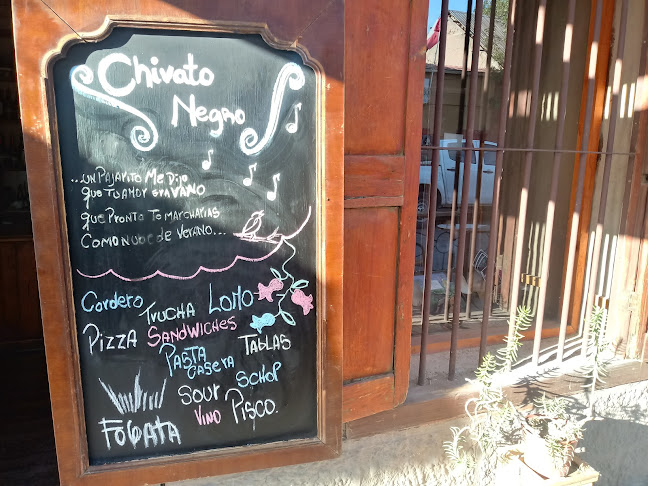 Chivato
Negro
...un Pajarito Me Dijo
que tu amor era vano
que pronto te marcharias
como nube de verano...
Cordero Trucha Lomo
Pizza Sandwiches
Pasta Casera Tablas
Sour Schop
Vino Pisco.
Fogata